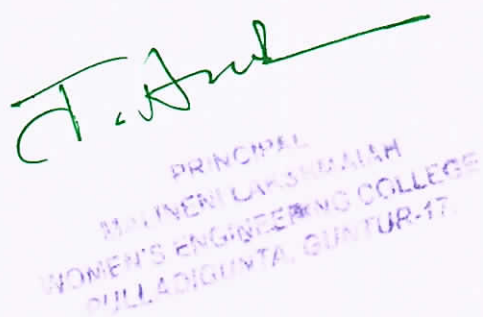 T.
PRINCIPAL
MALINENI LAKSHMAIAH
WOMEN'S ENGINEERING COLLEGE
PULLADIGUNTA, GUNTUR-17.